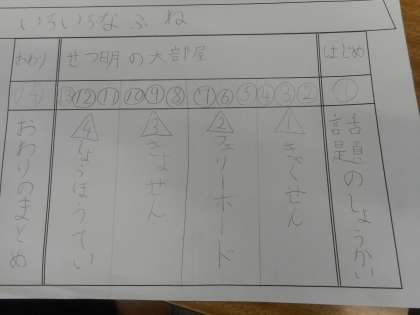 いろいろなふね
はじめ
せつ明の大部屋
おわり
①
②③④⑤⑥⑦⑧⑨⑩⑪⑫⑬
⑭
話題のしょうかい
1 きゃくせん
2 フェリーボード
3 ぎょせん
4 しょうぼうてい
おわりのまとめ